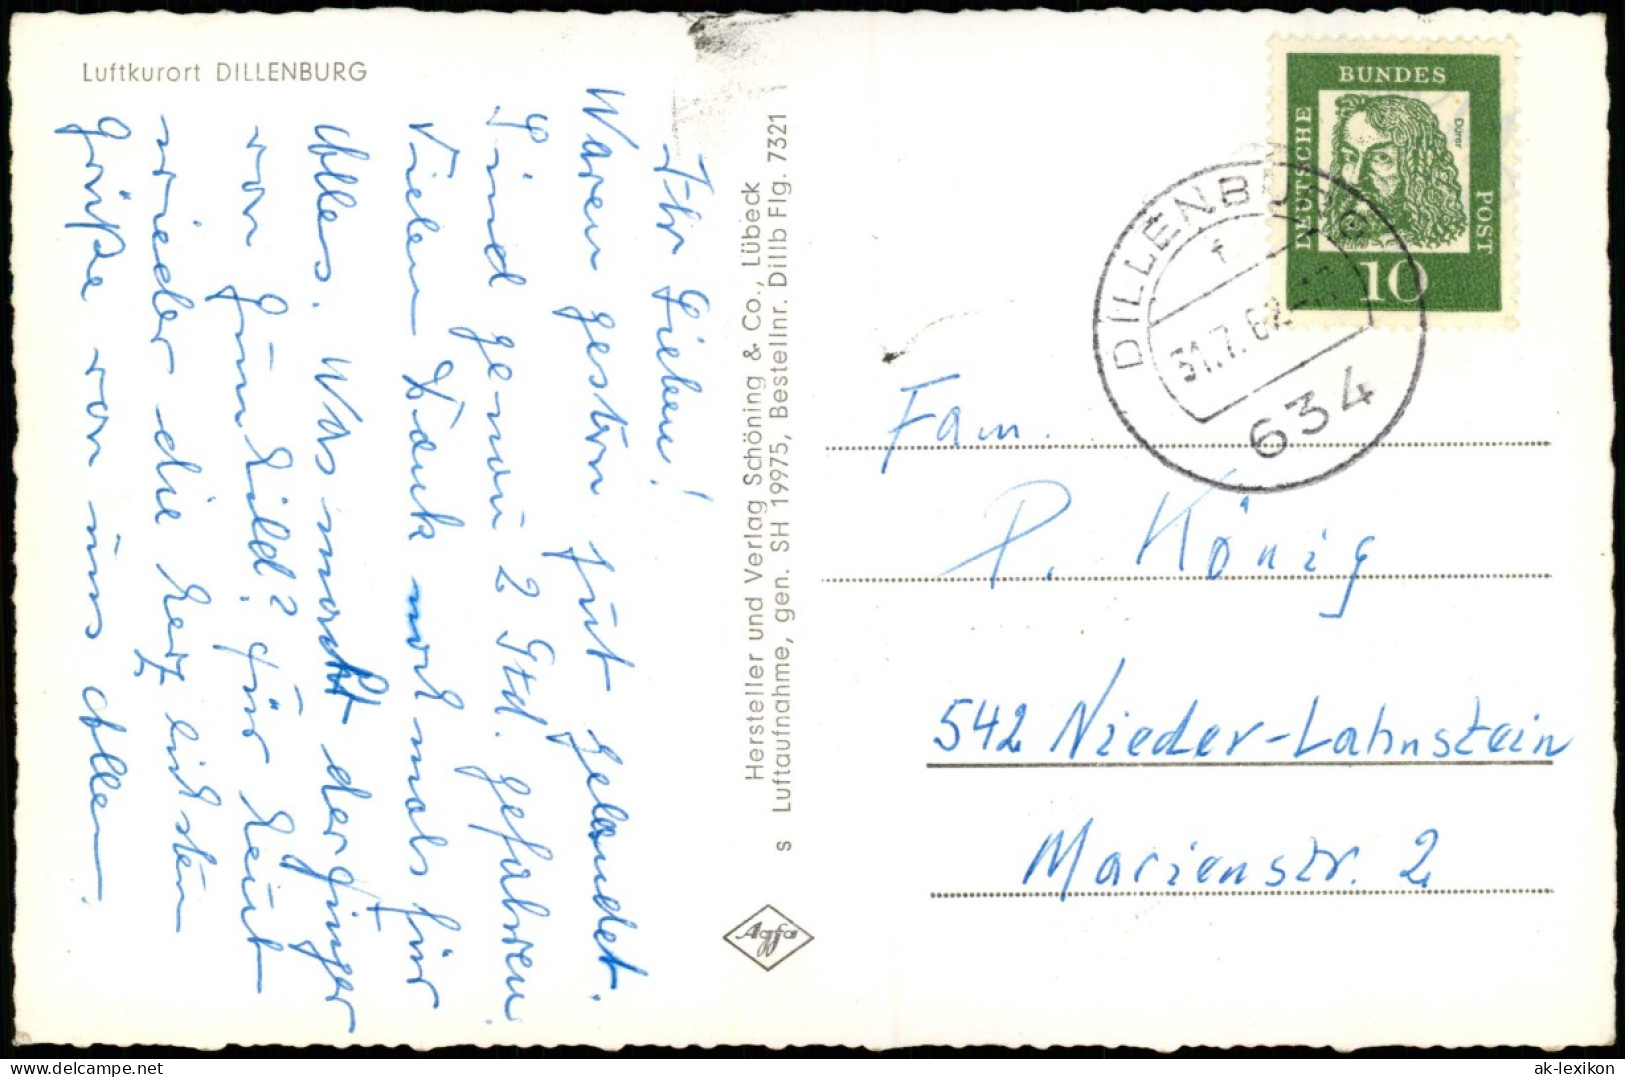 Luftkurort DILLENBURG
Ihr Lieben!
Waren gestern gut gelandet.
Sind genau 2 Std. gefahren.
Vielen Dank nochmals für
Alles. Was macht der Finger
von Gunhild? Für heut
wieder die herzlichsten
Grüße von uns allen.
Hersteller und Verlag Schöning & Co., Lübeck
s Luftaufnahme, gen. SH 19975, Bestellnr. Dillb Flg. 7321
Agfa
DEUTSCHE BUNDES POST
Dürer
10
DILLENBURG
f
31.7.62
634
Fam.
P. König
542 Nieder-Lahnstein
Marienstr. 2
ak-lexikon